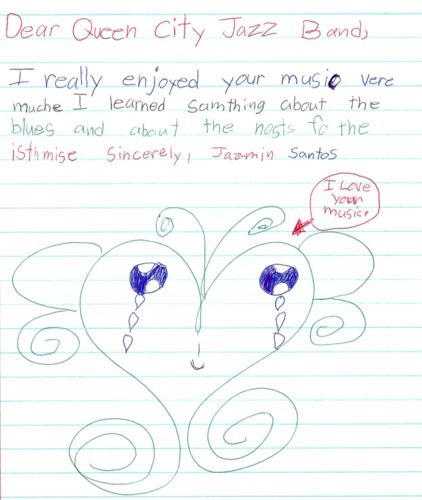 Dear Queen City Jazz Band,
I really enjoyed your music vere
muche I learned Samthing about the
blues and about the nosts fo the
isthmise Sincerely, Jazmin Santos
I Love
your
music.